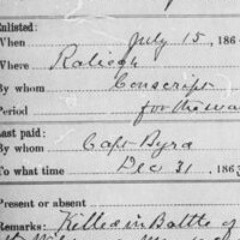 Enlisted:
When July 15, 186
Where Raliegh
By whom Conscript
Period for the wa
Last paid:
By whom Capt Byrd
To what time Dec 31, 186
Present or absent
Remarks: Killed in Battle of